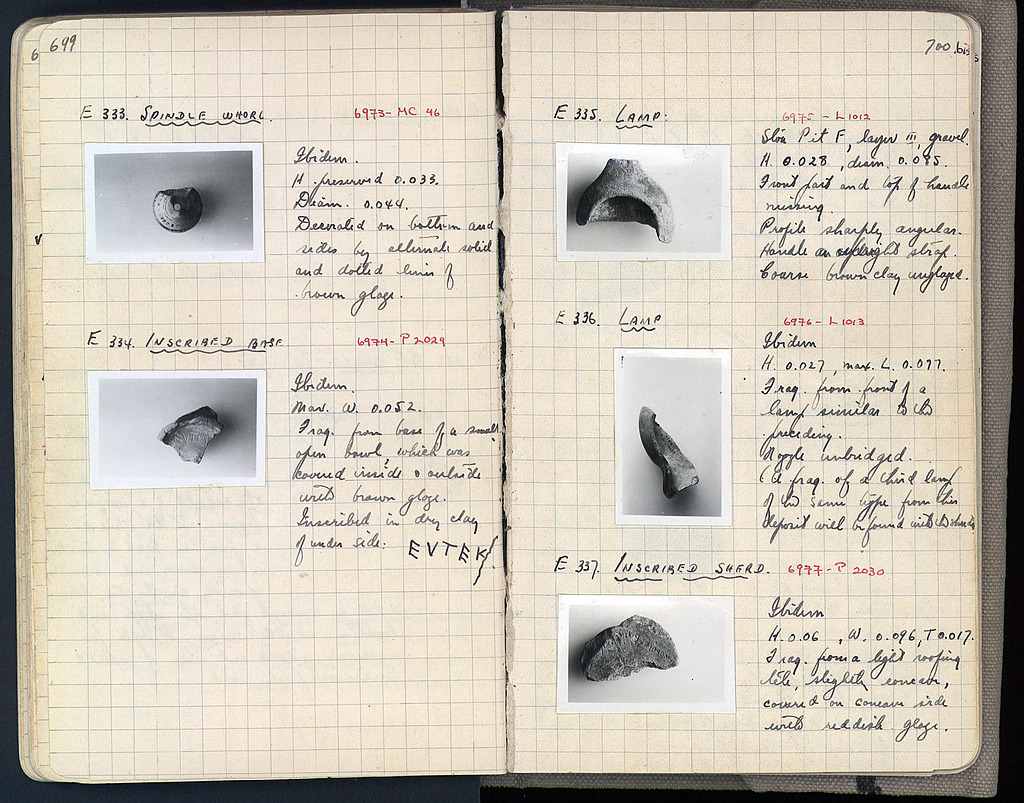 699
6
E 333. SPINDLE WHORL.
6973 - MC 46
Ibidem.
H. preserved 0.033.
Diam. 0.044.
Decorated on bottom and
sides by alternate solid
and dotted lines of
brown glaze.
E 334. INSCRIBED BASE
6974 - P 2029
Ibidem.
Max. W. 0.052.
Frag. from base of a small
open bowl, which was
covered inside & outside
with brown glaze.
Inscribed in dry clay
of under side: EVTEK
700 bis
E 335. LAMP:
6975 - L 1012
Stoa Pit F, layer III, gravel.
H. 0.028, diam. 0.085.
Front part and top of handle
missing.
Profile sharply angular.
Handle an upright strap.
Coarse brown clay unglazed.
E 336. LAMP
6976 - L 1013
Ibidem
H. 0.027, max. L. 0.077.
Frag. from front of a
lamp similar to the
preceding.
Nozzle unbridged.
(A frag. of a third lamp
of the same type from this
deposit will be found with the sherds
E 337. INSCRIBED SHERD.
6977 - P 2030
Ibidem
H. 0.06, W. 0.096, T 0.017.
Frag. from a light roofing
tile, slightly concave,
covered on concave side
with reddish glaze.